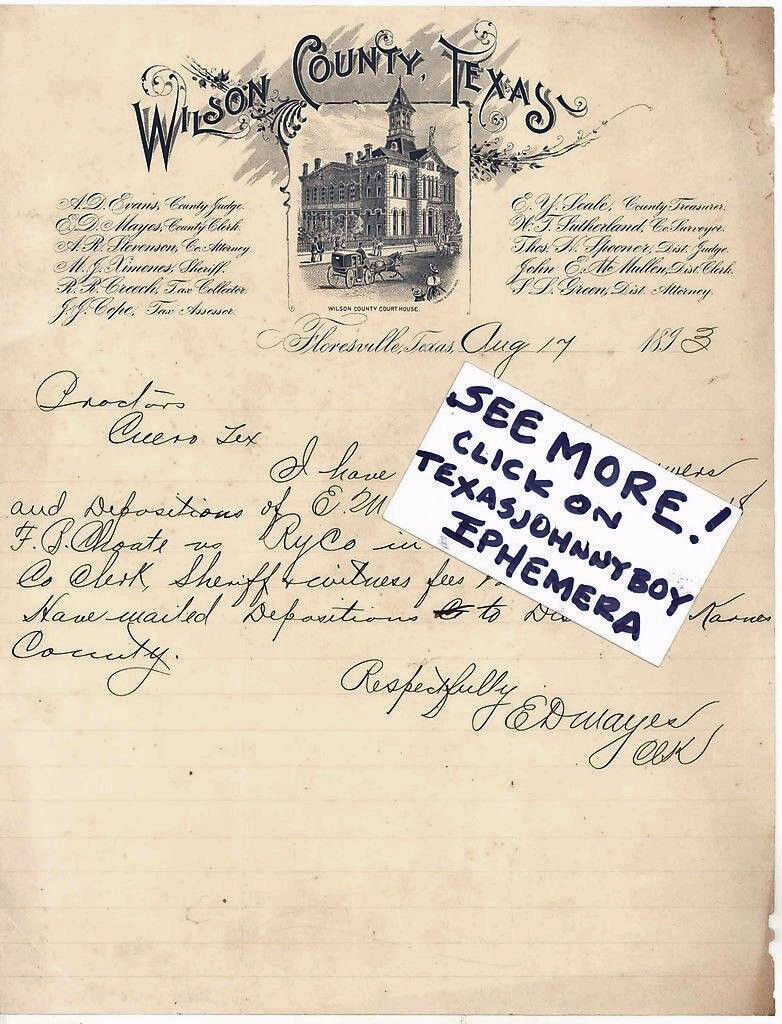 WILSON COUNTY, TEXAS
A. D. Evans, County Judge.
E. D. Mayes, County Clerk.
A. R. Stevenson, Co. Attorney
M. G. Ximenes, Sheriff.
R. R. Creech, Tax Collector
J. J. Cope, Tax Assessor.
WILSON COUNTY COURT HOUSE.
E. Y. Seale, County Treasurer.
W. T. Sutherland, Co. Surveyor.
Thos. H. Spooner, Dist. Judge.
John E. McMullen, Dist. Clerk.
S. L. Green, Dist. Attorney.
Floresville, Texas, Aug 17 1893
Proctors
Cuero Tex
I have
and Depositions of E. M
F. B. Choate vs Ry Co in
Co Clerk, Sheriff & witness fees
Have mailed Depositions to Dis Karnes
County.
Respectfully
E D Mayes
Clk
SEE MORE!
CLICK ON
TEXASJOHNNYBOY
EPHEMERA